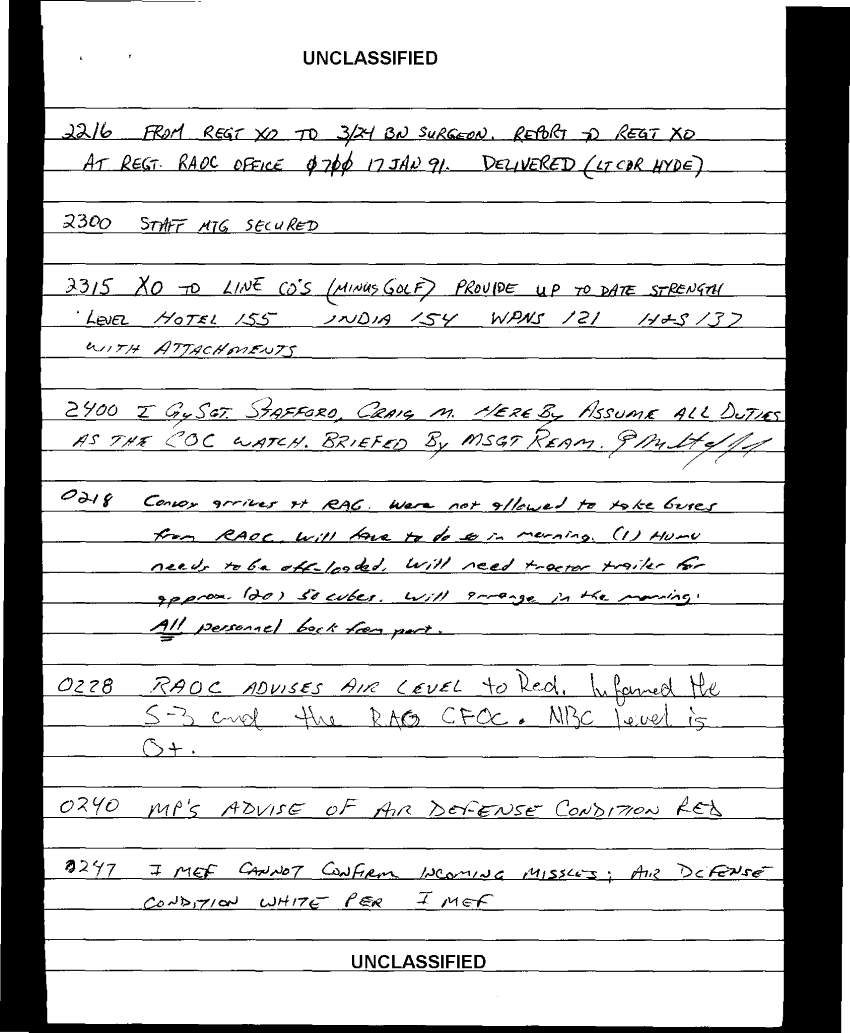 UNCLASSIFIED
2216 FROM REGT XO TO 3/24 BN SURGEON. REPORT TO REGT XO
AT REGT. RAOC OFFICE 0700 17 JAN 91. DELIVERED (LTCDR HYDE)
2300 STAFF MTG SECURED
2315 XO TO LINE CO'S (MINUS GOLF) PROVIDE UP TO DATE STRENGTH
LEVEL HOTEL 155 INDIA 154 WPNS 121 H+S 137
WITH ATTACHMENTS
2400 I GySGT. STAFFORD, CRAIG M. HEREBy ASSUME ALL DUTIES
AS THE COC WATCH. BRIEFED By MSGT REAM.
0218 Convoy arrives at RAG. Were not allowed to take buses
from RAOC. Will have to do so in morning. (1) Humv
needs to be off-loaded. Will need tractor trailer for
approx. (20) 50 cubes. Will arrange in the morning.
All personnel back from port.
0228 RAOC ADVISES AIR LEVEL to Red. Informed the
S-3 and the RAG CFOC. NBC level is
O+.
0240 MP'S ADVISE OF AIR DEFENSE CONDITION RED
0247 I MEF CANNOT CONFIRM INCOMING MISSLES; AIR DEFENSE
CONDITION WHITE PER I MEF
UNCLASSIFIED